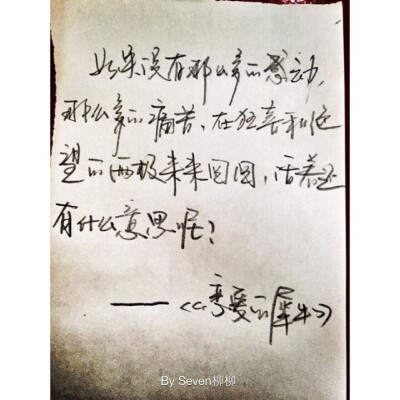 如果没有那么多的感动,
那么多的痛苦、在狂喜和绝
望的两极来来回回,活着还
有什么意思呢?
——《恋爱的犀牛》
By Seven柳柳